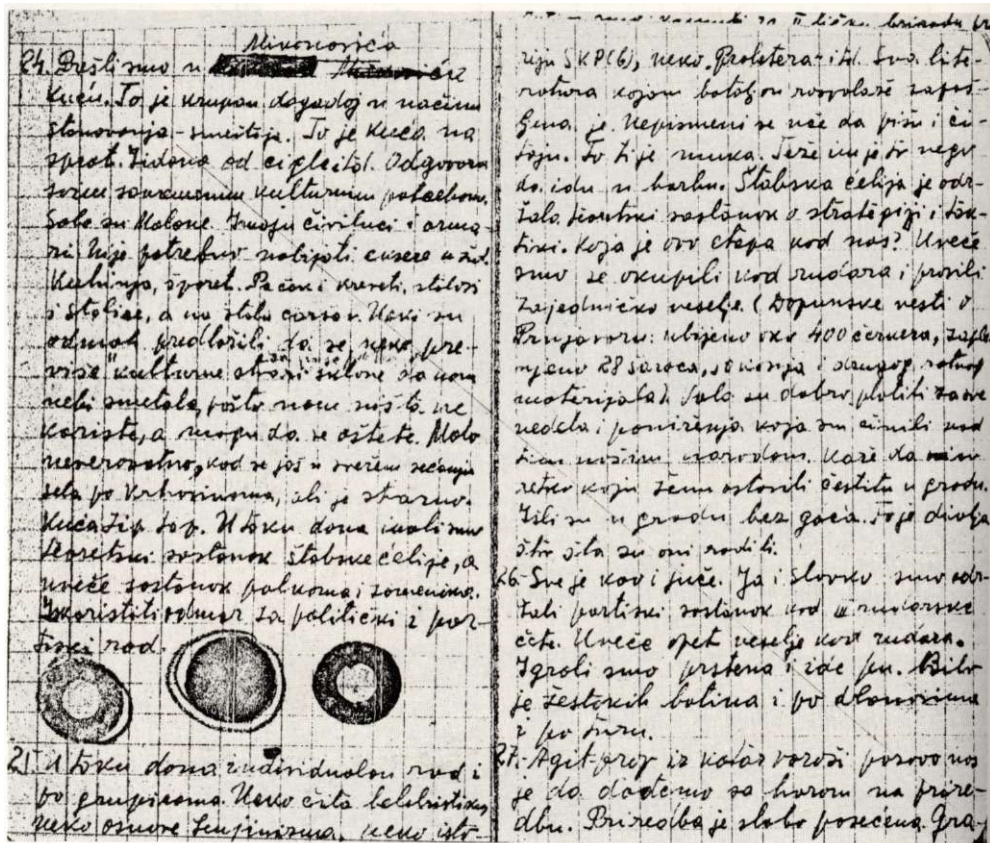 Mivonovića
24. Prešli smo u kuću. To je krupan događaj u načinu
stanovanja - smeštaja. To je kuća na
sprat. Zidana od cigle itd. Odgovara
svim savremenim kulturnim potrebama.
Sobe su Malene. Imaju čiviluci i orma-
ri. Nije potrebno nabijati eksere u zid.
Kuhinja, šporet. Pećani kreveti, stolovi
i stolice, a na stolu čaršav. Neki su
odmah predložili da se neke pre-
više kulturne stvari sklone da nam
nebi smetale, pošto nam ništa ne
koriste, a mogu da se oštete. Malo
neverovatno, kad se još u svežem sećanju
sela po Vrhovinama, ali je stvarno.
Kuća tip top. U toku dana imali smo
teoretski sastanak štabske ćelije, a
uveče sastanak polkoma i zamenika.
Iskoristiti odmor za politički i par-
tiski rad.
25. U toku dana individualan rad i
po grupicama. Neko čita beletristiku,
neko osnove lenjinizma, neko isto-
za II ličku brigadu
riju SKP(b), neko "Proletera" itd. Sva lite-
ratura kojom bataljon raspolaže zapos-
ljena je. Nepismeni se uče da pišu i či-
taju. To ti je muka. Teže im je to nego
da idu u borbu. Štabska ćelija je odr-
žala teoretski sastanak o strategiji i tak-
tici. Koja je ovo etapa kod nas? Uveče
smo se okupili kod rudara i
zajedničko veselje. (Dopunske vesti o
Prnjavoru: ubijeno oko 400 četnika, zaple-
njeno 28 šaraca, 50 konja i drugog ratnog
materijala). Tako su dobro platili za sve
nedela i poniženja koja su činili nad
našim narodom. Kaže da
retko koju ženu ostavili čestitu u gradu.
Išli su u gradu bez gaća. To je divlja
šta su oni radili.
26. Sve je kao i juče. Ja i Slavko smo odr-
žali partiski sastanak kod III rudarske
čete. Uveče opet veselje kod rudara.
Igrali smo prstena i ide pu. Bilo
je žestokih batina i po dlanovima
i po turu.
27. Agit-prop iz Kotor varoši pozvao nas
je da dođemo sa horom na prire-
dbu. Priredba je slabo posećena. Gra-